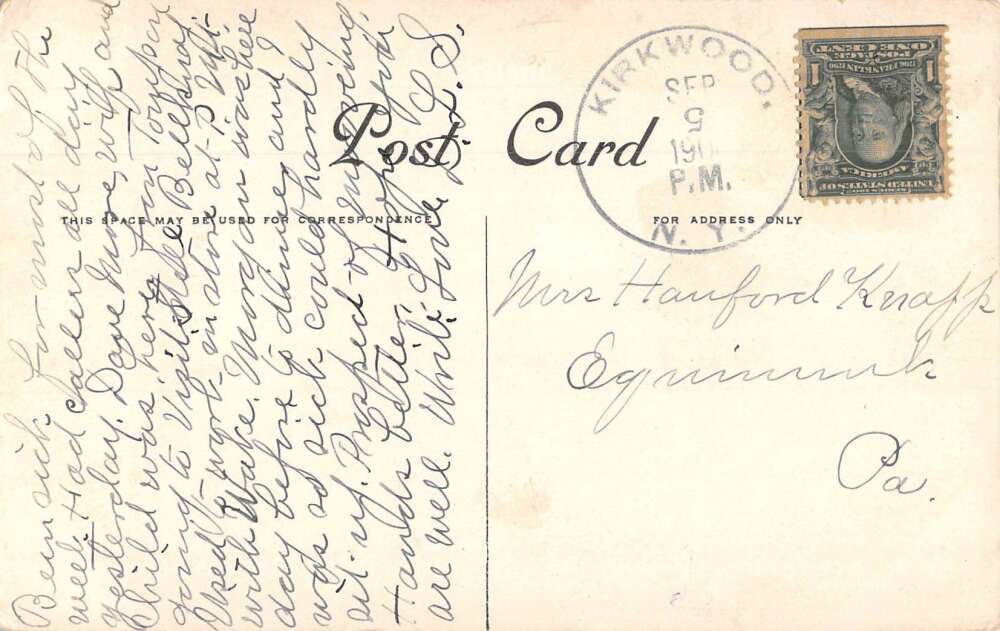 Post Card
THIS SPACE MAY BE USED FOR CORRESPONDENCE
FOR ADDRESS ONLY
KIRKWOOD,
SEP
5
190
P.M.
N. Y.
POSTAGE
ONE CENT
1 1
FRANKLIN
SERIES 1902
UNITED STATES OF
AMERICA
Mrs Hanford Knapp
Equinunk
Pa.
Been sick for most of the
week. Had callers all day
yesterday. Dave More, wife and
Child was here from
going to visit Bellknap
Used to work in store at
with Wake. Morgan was here
day before to dinner and I
was so sick could hardly
sit up. Prospect of improving.
Hands better. Hope you
are well. Write. Love L. S.